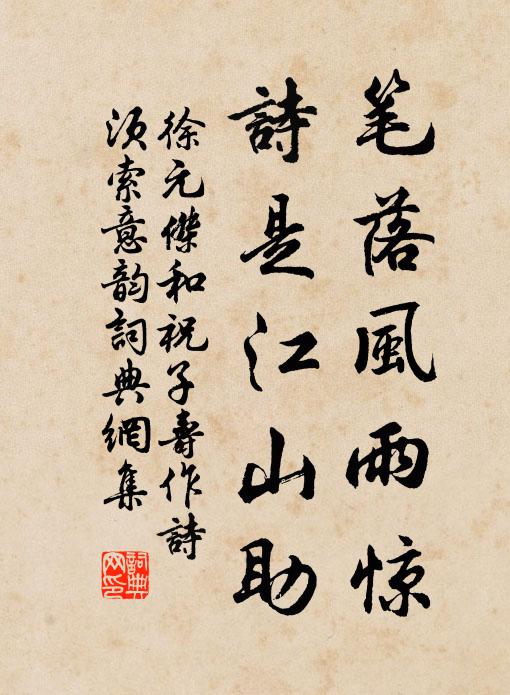 笔落風雨惊
詩是江山助
徐元傑和祝子壽作詩
須索意韵詞典網集
詞典
网印